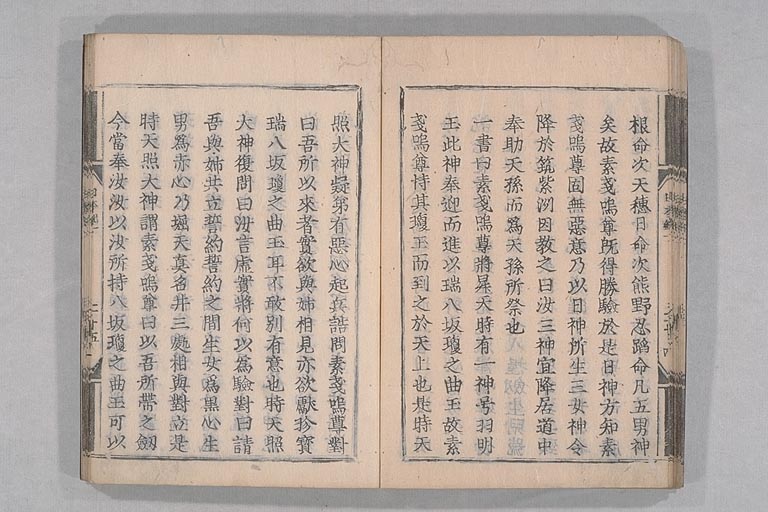 根命次天穗日命次熊野忍蹈命凡五男神
矣故素戔嗚尊既得勝驗於是日神方知素
戔嗚尊固無惡意乃以日神所生三女神令
降於筑紫洲因教之曰汝三神宜降居道中
奉助天孫而爲天孫所祭也
一書曰素戔嗚尊將昇天時有一神号羽明
玉此神奉迎而進以瑞八坂瓊之曲玉故素
戔嗚尊持其瓊玉而到之於天上也是時天
照大神疑弟有惡心起兵詰問素戔嗚尊對
曰吾所以來者實欲與姉相見亦欲獻珍寶
瑞八坂瓊之曲玉耳不敢別有意也時天照
大神復問曰汝言虚實將何以爲驗對曰請
吾與姉共立誓約誓約之間生女爲黒心生
男爲赤心乃堀天真名井三處相與對立是
時天照大神謂素戔嗚尊曰以吾所帶之劔
今當奉汝汝以汝所持八坂瓊之曲玉可以